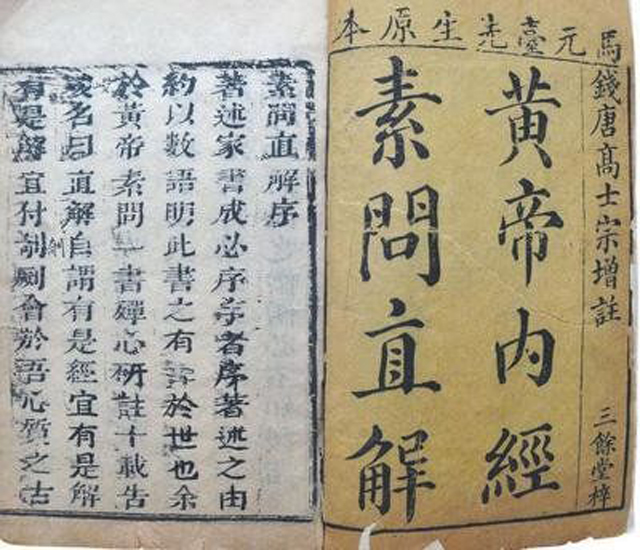 馬元臺先生原本
錢唐高士宗增註 三餘堂梓
黃帝內經
素問直解
素問直解序
著述家書成必序序者序著述之由
約以數語明此書之有於世也余
於黃帝素問一書殫心研註十載告
成名曰直解自謂有是經宜有是解
有是解宜付剞劂會於吾心質之古